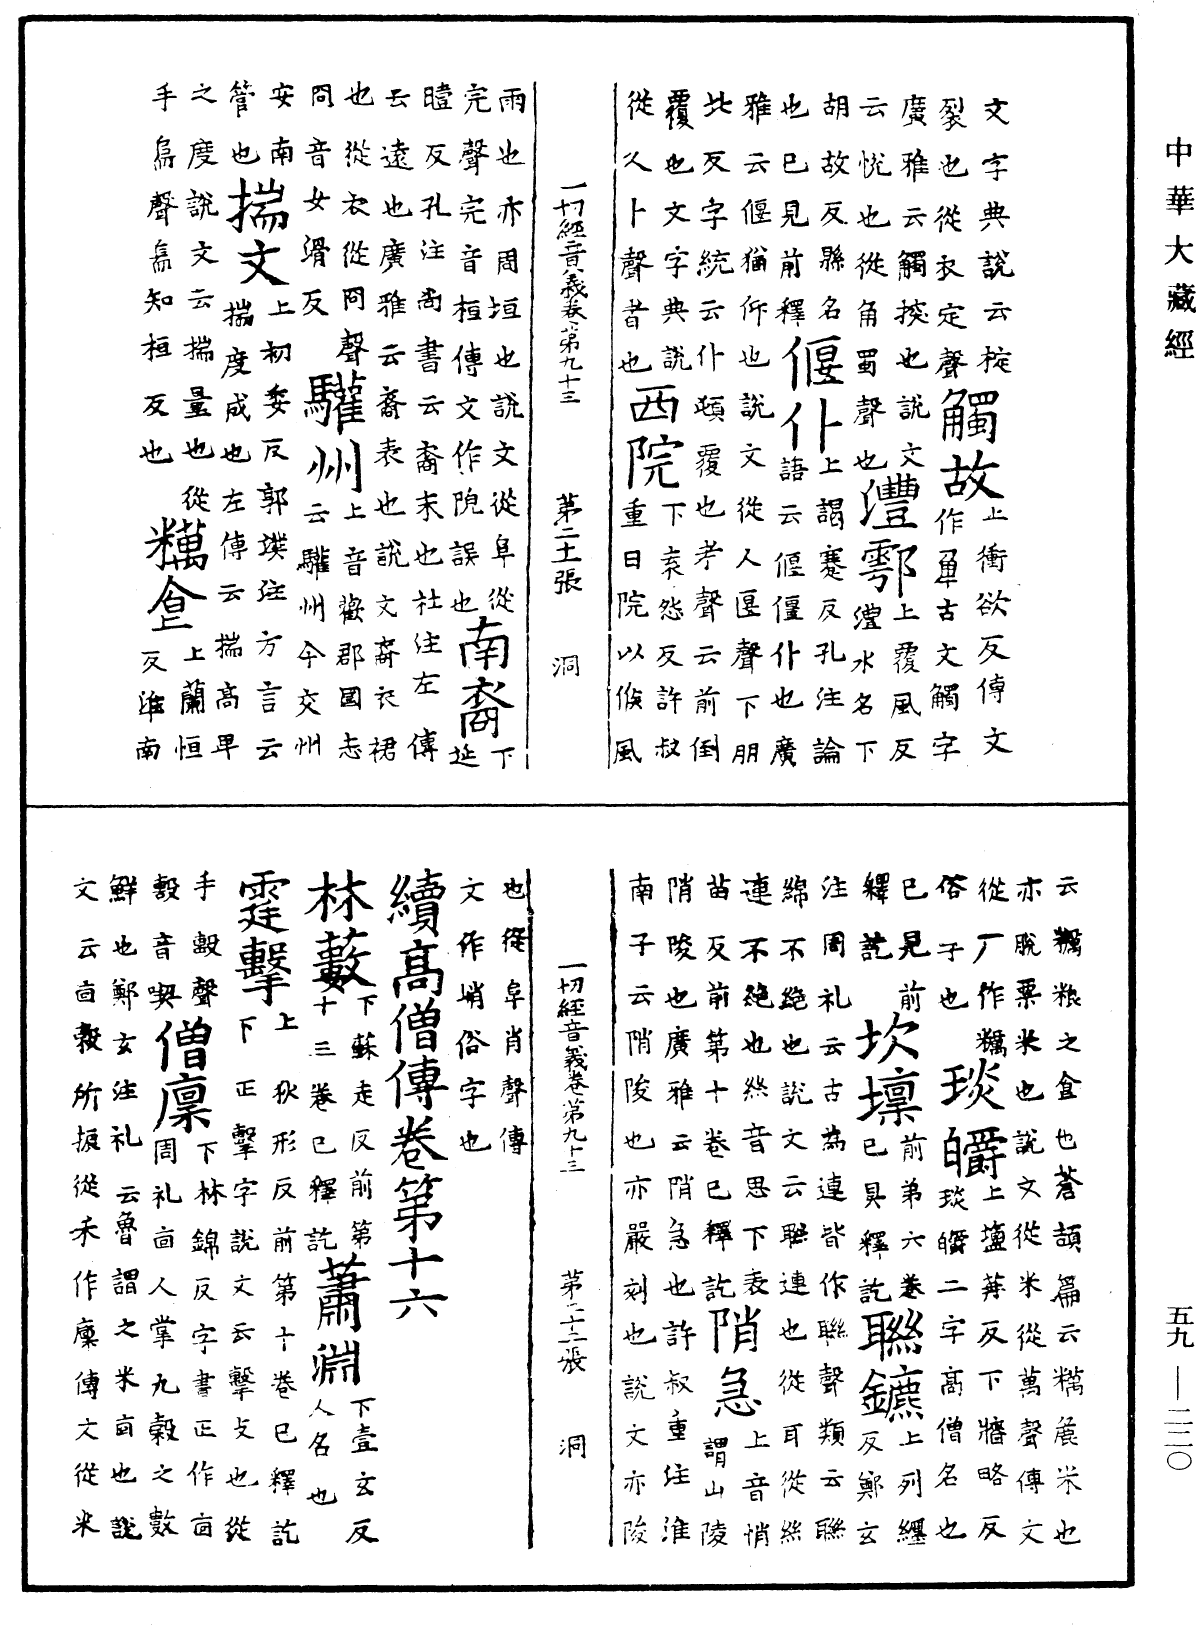 中華大藏經
文字典說云㝎
裂也從衣定聲觸故上衝欲反傳文
廣雅云觸揬也說文作𧢻古文觸字
云忧也從角蜀聲也灃鄠上覆風反
胡故反縣名灃水名下
也已見前釋偃仆上謁蹇反孔注論
雅云偃猶仰也語云偃偃仆也廣
此反字統云仆說文從人匽聲下朋
覆也文字典說頓覆也考聲云前倒
從人卜聲音也西院下袁怨反許叔
重曰院以候風
一切經音義卷第九十三 第二十一張 洞
雨也亦周垣也說文從阜從
完聲完音桓傳文作院誤也南裔下延
曀反孔注尚書云裔末也杜注左傳
云遠也廣雅云裔表也說文裔衣裙
也從衣從冏聲驩州上音歡郡國志
冏音女滑反云驩州今交州
安南揣文上初委反郭璞注方言云
管也揣度成也左傳云揣高卑
之度說文云揣量也從
手耑聲耑知桓反也糲食上蘭恒
反淮南
云糲粮之食也蒼頡篇云糲麁米也
亦脫粟米也說文從米從萬聲傳文
從厂作糲琰㿨上壇苒反下牆略反
俗子也琰㿨二字高僧名也
已見前坎壈已前弟六卷上列纏
釋訖已具釋訖聯鑣反鄭玄
注周礼云古為連皆作聯聲類云聯
綿不絕也說文云聯連也從耳從絲
連不絕也絲音思下表
苗反前第十卷已釋訖陗急上音悄
陗陵也廣雅云陗急也許叔重注淮
謂山陵
南子云陗陖也亦嚴刻也說文亦陖
一切經音義卷第九十三 第二十二張 洞
也從阜肖聲傳
文作峭俗字也
續高僧傳卷第十六
林藪下蘇走反前第十三卷已釋訖蕭淵下壹玄反人名也
霆擊上狄形反前第十卷已釋訖
下正擊字說文云擊攴也從
手毄聲毄音喫僧廩下林錦反字書正作㐭
周礼㐭人掌九穀之數
鮮也鄭玄注礼云魯謂之米㐭也說
文云㐭穀所振從禾作廩傳文從米
五九—二二〇